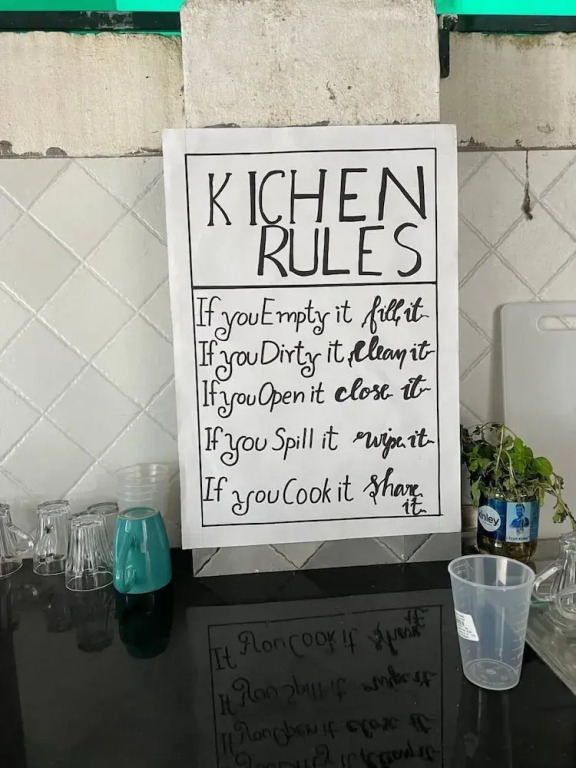 KICHEN
RULES
If you Empty it fill it
If you Dirty it Clean it
If you Open it close it
If you Spill it wipe it
If you Cook it Share
it